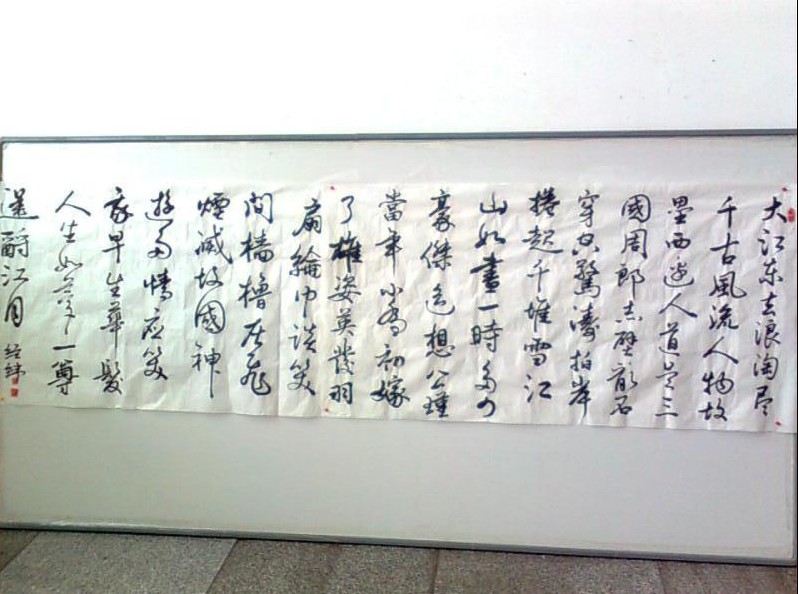 大江东去浪淘尽
千古風流人物故
壘西邊人道是三
國周郎赤壁亂石
穿空驚濤拍岸
捲起千堆雪江
山如畫一時多少
豪傑遥想公瑾
當年小喬初嫁
了雄姿英發羽
扇綸巾談笑
間檣櫓灰飛
煙滅故國神
遊多情應笑
我早生華髮
人生如夢一尊
還酹江月 经纬